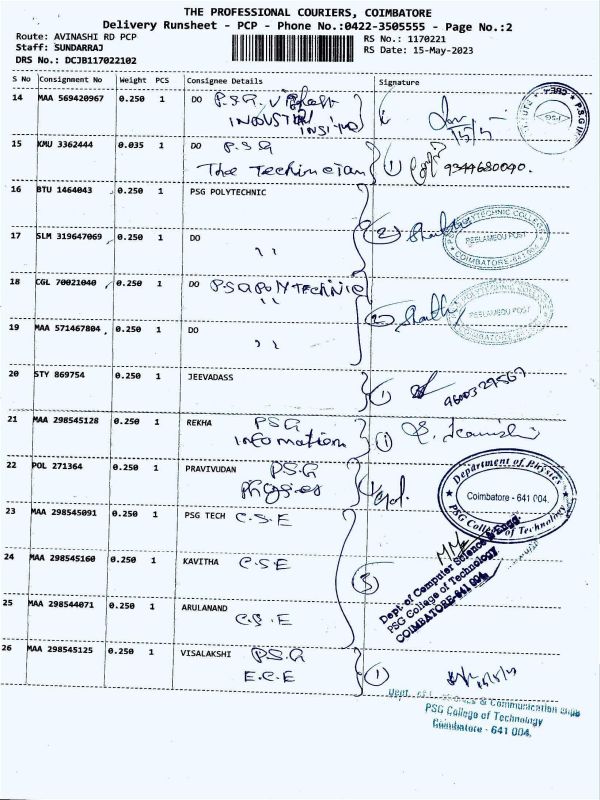 THE PROFESSIONAL COURIERS, COIMBATORE
Delivery Runsheet - PCP - Phone No.:0422-3505555 - Page No.:2
Route: AVINASHI RD PCP
RS No.: 1170221
Staff: SUNDARRAJ
RS Date: 15-May-2023
DRS No.: DCJB117022102
S No Consignment No Weight PCS Consignee Details Signature
14 MAA 569420967 0.250 1 DO P.S.G.
INDUSTRIAL
15 KMU 3362444 0.035 1 DO P.S.G
The
1 9344680090.
16 BTU 1464043 0.250 1 PSG POLYTECHNIC
2
POLYTECHNIC COLLEGE
PEELAMEDU POST
COIMBATORE-641 004
17 SLM 319647069 0.250 1 DO
''
18 CGL 70021040 0.250 1 DO PSG POLYTECHNIC
''
2
PEELAMEDU POST
19 MAA 571467804 0.250 1 DO
''
20 STY 869754 0.250 1 JEEVADASS
1
21 MAA 298545128 0.250 1 REKHA PSG
Information
1
22 POL 271364 0.250 1 PRAVIVUDAN PSG
Physics
Department of Physics
Coimbatore - 641 004.
PSG College of Technology
23 MAA 298545091 0.250 1 PSG TECH C.S.E
24 MAA 298545160 0.250 1 KAVITHA C.S.E
3
Dept of Computer Science & Engg
PSG College of Technology
COIMBATORE-641 004.
25 MAA 298544071 0.250 1 ARULANAND
C.S.E
26 MAA 298545125 0.250 1 VISALAKSHI P.S.G
E.C.E
1
& Communication Engg
PSG College of Technology
Coimbatore - 641 004.